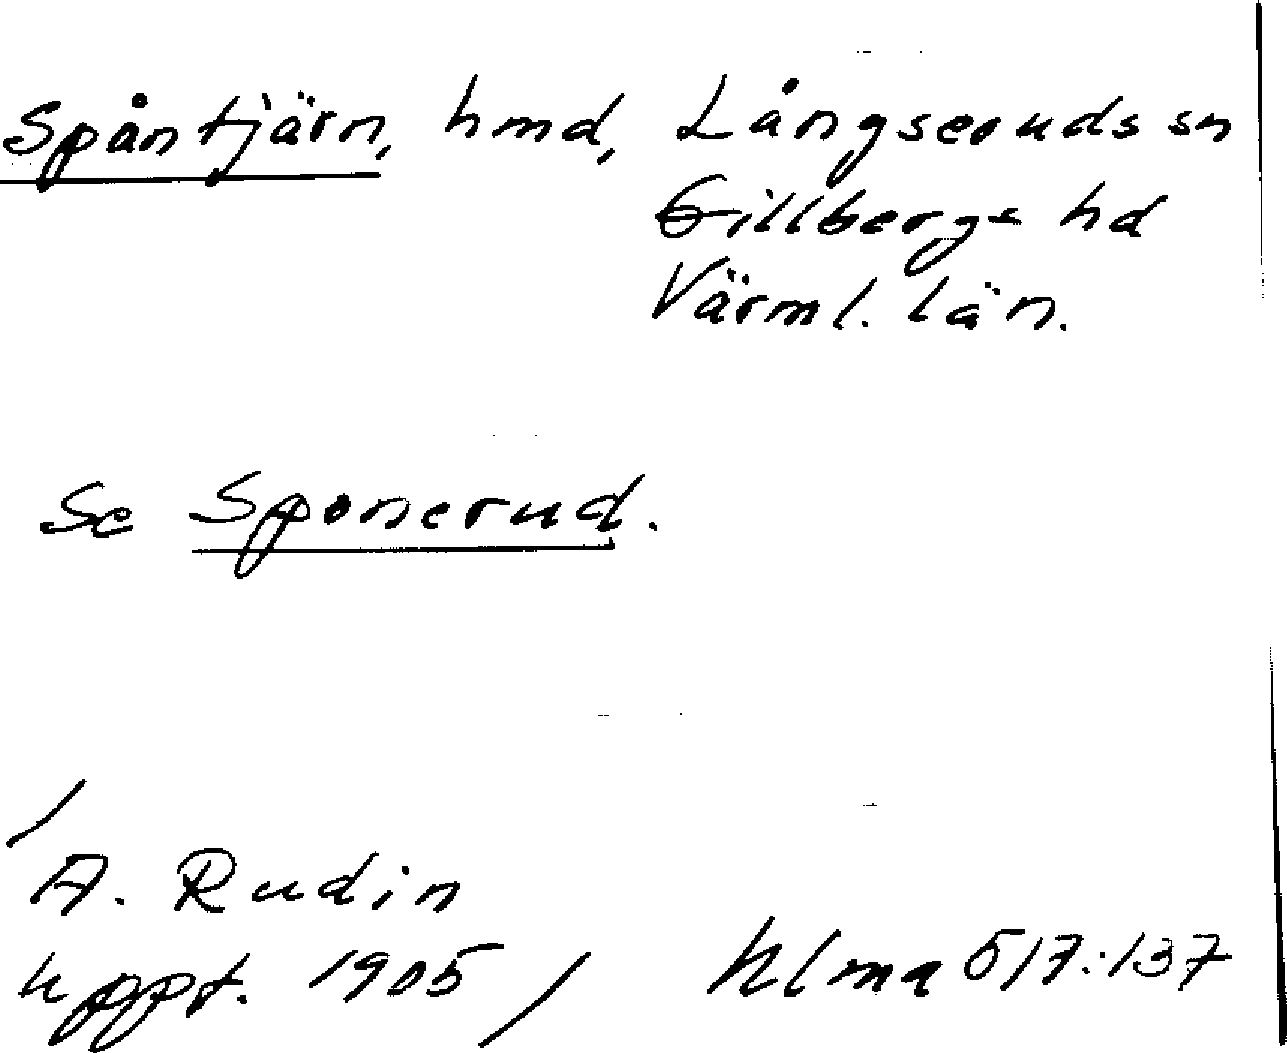 Spåntjärn, hmd, Långseruds sn
Gillbergs hd
Värml. län.
Se Sponerud.
/
A. Rudin
uppt. 1905 /
Klma 517:137